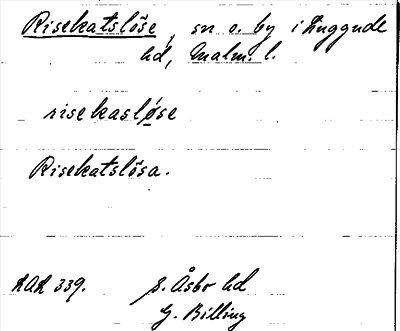 Risekatslöse, sn o. by i Luggude
hd, Malm. l.
risekasløse
Risekatslösa.
RAÄ 339. S. Åsbo hd
G. Billing